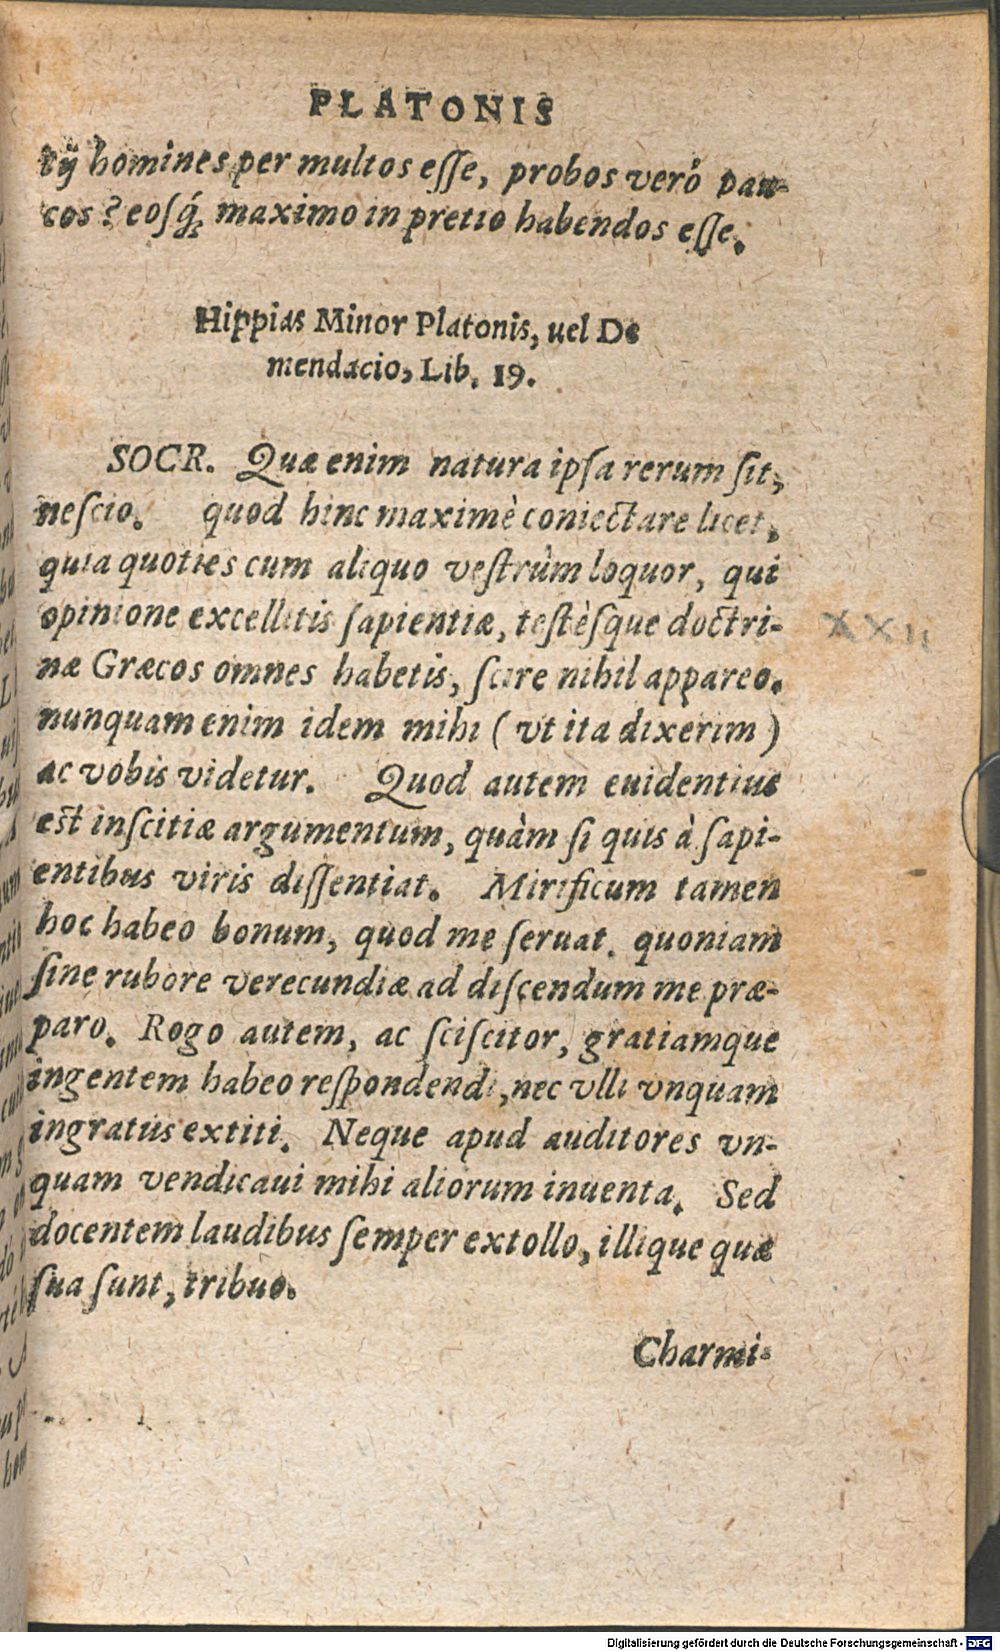 PLATONIS
tij homines per multos eſſe, probos verò pau-
cos? eoſq́; maximo in pretio habendos eſſe.
Hippias Minor Platonis, uel De
mendacio, Lib. 19.
SOCR. Quæ enim natura ipſa rerum ſit,
neſcio. quod hinc maximè coniectare licet,
quia quoties cum aliquo veſtrùm loquor, qui
opinione excellitis ſapientiæ, teſtèſque doctri-
næ Græcos omnes habetis, ſcire nihil appareo.
nunquam enim idem mihi (vt ita dixerim)
ac vobis videtur. Quod autem euidentius
eſt inſcitiæ argumentum, quàm ſi quis à ſapi-
entibus viris diſſentiat. Mirificum tamen
hoc habeo bonum, quod me ſeruat. quoniam
ſine rubore verecundiæ ad diſcendum me præ-
paro. Rogo autem, ac ſciſcitor, gratiamque
ingentem habeo reſpondendi, nec vlli vnquam
ingratus extiti. Neque apud auditores vn-
quam vendicaui mihi aliorum inuenta. Sed
docentem laudibus ſemper extollo, illique quæ
ſua ſunt, tribuo.
Charmi-
Digitalisierung gefördert durch die Deutsche Forschungsgemeinschaft - DFG